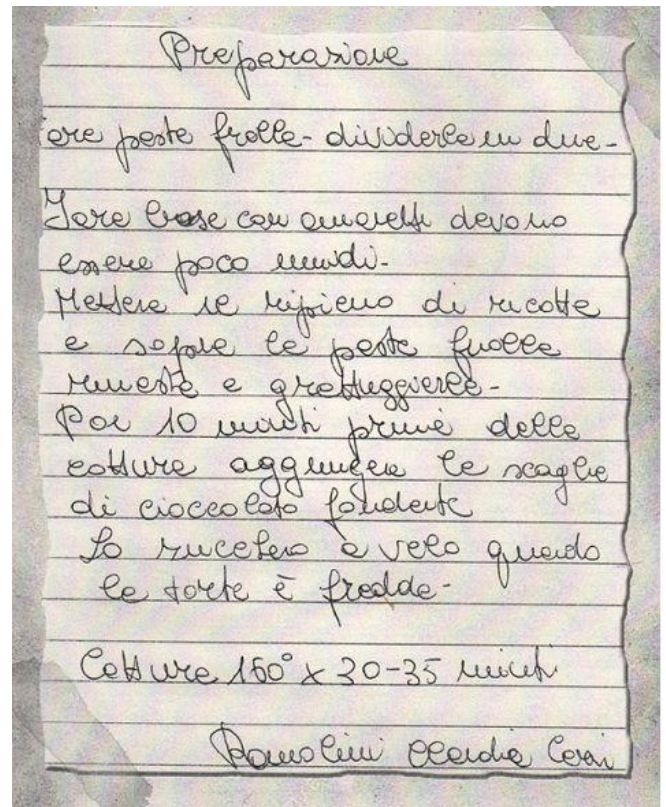 Preparazione
are pasta frolla - dividerla in due -
Fare base con amaretti devono
essere poco umidi -
Mettere il ripieno di ricotta
e sopra la pasta frolla
rimasta e grattuggierla -
Poi 10 minuti prima della
cottura aggiungere le scaglie
di cioccolato fondente
Lo zucchero a velo quando
la torta è fredda -
Cottura 160° x 30-35 minuti
Claudia